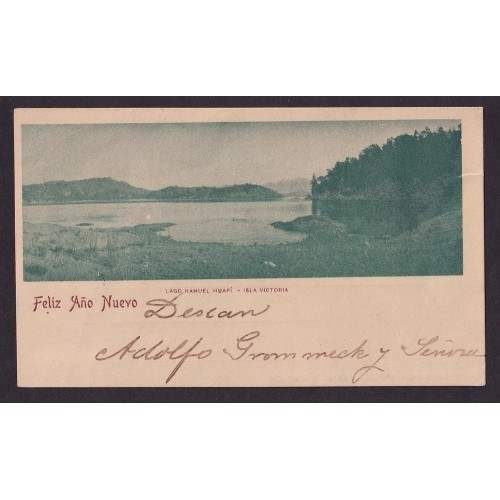 LAGO NAHUEL HUAPÍ - ISLA VICTORIA
Feliz Año Nuevo Desean
Adolfo Grommeck y Señora